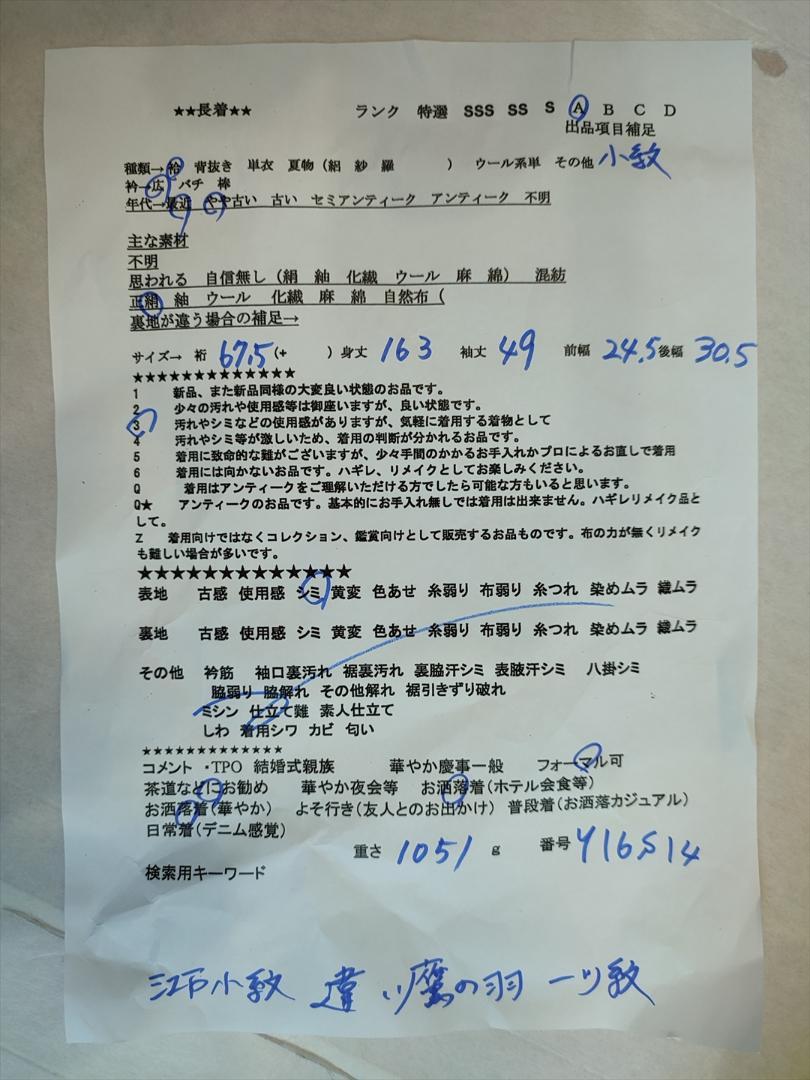 ★★長着★★　ランク　特選　SSS　SS　S　A　B　C　D
出品項目補足
種類→袷　背抜き　単衣　夏物（絽　紗　羅　　　）　ウール系単　その他　小紋
衿→広　バチ　棒
年代→最近　やや古い　古い　セミアンティーク　アンティーク　不明
主な素材
不明
思われる　自信無し（絹　紬　化繊　ウール　麻　綿）　混紡
正絹　紬　ウール　化繊　麻　綿　自然布（
裏地が違う場合の補足→
サイズ→　裄　67.5（+　　　）身丈　163　袖丈　49　前幅　24.5　後幅　30.5
★★★★★★★★★★★★★
1　新品、また新品同様の大変良い状態のお品です。
2　少々の汚れや使用感等は御座いますが、良い状態です。
3　汚れやシミなどの使用感がありますが、気軽に着用する着物として
4　汚れやシミ等が激しいため、着用の判断が分かれるお品です。
5　着用に致命的な難がございますが、少々手間のかかるお手入れかプロによるお直しで着用
6　着用には向かないお品です。ハギレ、リメイクとしてお楽しみください。
Q　着用はアンティークをご理解いただける方でしたら可能な方もいると思います。
Q★　アンティークのお品です。基本的にお手入れ無しでは着用は出来ません。ハギレリメイク品と
して。
Z　着用向けではなくコレクション、鑑賞向けとして販売するお品ものです。布の力が無くリメイク
も難しい場合が多いです。
★★★★★★★★★★★★★
表地　古感　使用感　シミ　黄変　色あせ　糸弱り　布弱り　糸つれ　染めムラ　織ムラ
裏地　古感　使用感　シミ　黄変　色あせ　糸弱り　布弱り　糸つれ　染めムラ　織ムラ
その他　衿筋　袖口裏汚れ　裾裏汚れ　裏脇汗シミ　表腋汗シミ　八掛シミ
脇弱り　脇解れ　その他解れ　裾引きずり破れ
ミシン　仕立て難　素人仕立て
しわ　着用シワ　カビ　匂い
★★★★★★★★★★★★★
コメント　・TPO　結婚式親族　華やか慶事一般　フォーマル可
茶道などにお勧め　華やか夜会等　お洒落着（ホテル会食等）
お洒落着（華やか）　よそ行き（友人とのお出かけ）　普段着（お洒落カジュアル）
日常着（デニム感覚）
重さ　1051　g　番号　Y16S14
検索用キーワード
江戸小紋　違い鷹の羽　一ツ紋